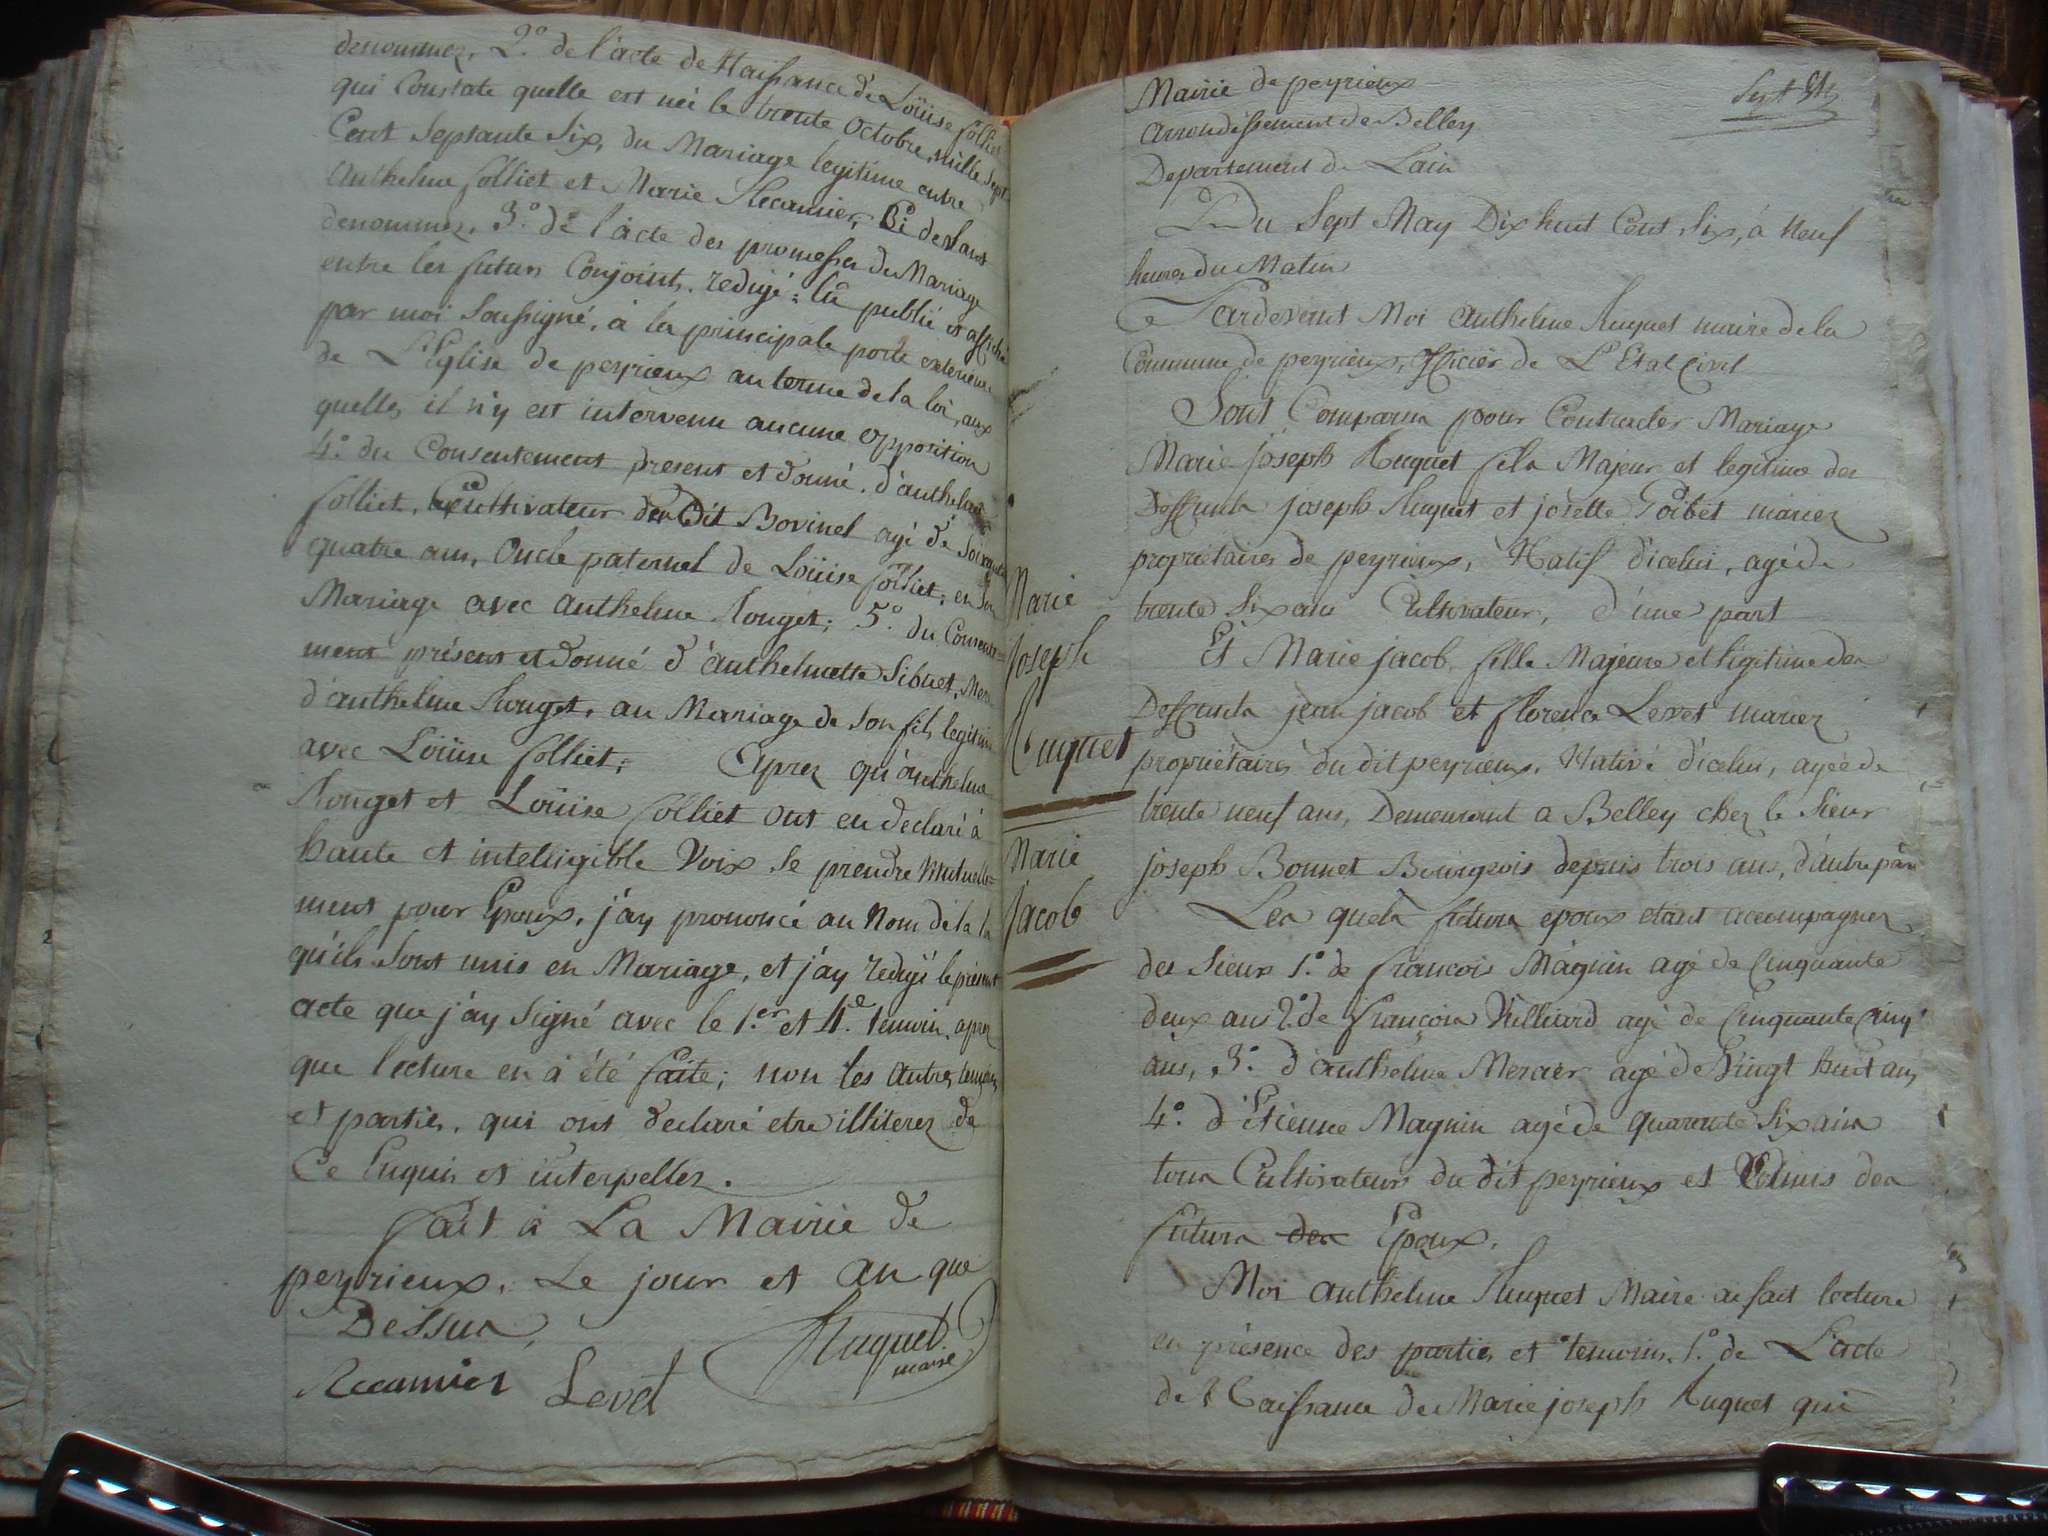 denommez, 2.° de l'acte de Naissance de Loüise folliet
qui Constate quelle est née le trente Octobre, mille Sept
Cent Septante Six, du Mariage legitime entre
Anthelme folliet et Marie Recamier, Ci devant
denommez. 3.° de l'acte des promesses du Mariage
entre les futurs Conjoints. redigé, lû publié et affiché
par moi Soussigné, à la principale porte exterieure
de L'Eglise de peyrieux au terme de la loi, aux
quelles il n'y est intervenu aucune opposition
4.° du Consentement present et donné. d'anthelme
folliet, Cultivateur du dit Bovinel agé de Soixante
quatre ans, Oncle paternel de Loüise folliet, en Son
Mariage avec anthelme Rouget; 5.° du Consente=
ment présent et donné d'anthelmette Sibuet, Mere
d'anthelme Rouget, au Mariage de Son fils legitime
avec Loüise folliet; Aprez qu'anthelme
Rouget et Loüise folliet ont eu declaré à
haute et intelligible Voix se prendre Mutuelle=
ment pour Epoux, j'ay prononcé au Nom de la loi
qu'ils Sont unis en Mariage, et j'ay redigé le présent
acte que j'ay Signé avec le 1.er et 4.e temoin. aprez
que lecture en à été faite; non les autres temoins
et parties, qui ont declaré etre illiterez de
Ce Enquis et interpellez.
fait à La Mairie de
peyrieux, Le jour et an que
Dessus
Recamier Levet Huguet maire
Mairie de peyrieux Sept
arrondissement de Belley
Departement de Lain
Du Sept May Dix huit Cent Six, à Neuf
heures du Matin
Pardevant Moi anthelme Huguet maire de la
Commune de peyrieux, officier de L'Etat Civil
Sont Comparus pour Contracter Mariage
Marie joseph Huguet fils Majeur et legitime des
Deffunts joseph Huguet et josette Goibet mariez
propriétaires de peyrieux, Natif d'icelui, agé de
trente Six ans Cultivateur, d'une part
Et Marie jacob, fille Majeure et ligitime des
Deffunts jean jacob et florence Levet mariez
propriétaires du dit peyrieux, Native d'icelui, agée de
trente neuf ans, Demeurant a Belley chez le Sieur
joseph Bonnet Bourgeois depuis trois ans, d'autre part
Les quels futurs époux etant accompagnez
des Sieurs 1.° de francois Magnin agé de Cinquante
deux ans 2.° de françois Villiard agé de Cinquante Cinq
ans, 3.° d'anthelme Mercier agé de Vingt huit ans
4.° d'Etienne Magnin agé de quarente Six ans
tous Cultivateurs du dit peyrieux et Voisins des
futurs des Epoux.
Moi anthelme Huguet Maire ai fait lecture
en présence des parties et temoins, 1.° de L'acte
de Naissance de Marie joseph Huguet qui
Marie
Joseph
Huguet
Marie
Jacob